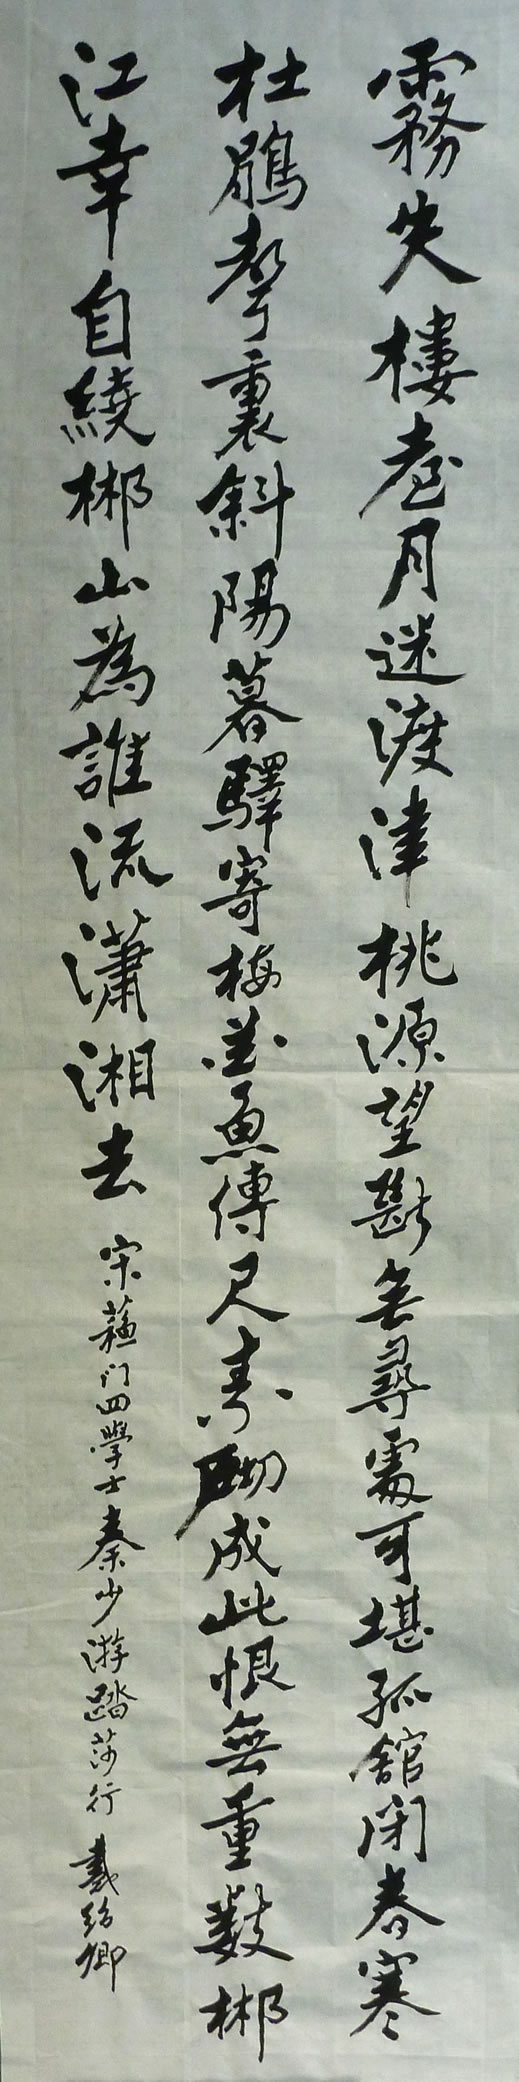 霧失樓臺月迷渡津桃源望斷無尋處可堪孤舘閉春寒
杜鵑聲裏斜陽暮驛寄梅花魚傳尺素砌成此恨無重數郴
江幸自繞郴山為誰流瀟湘去
宋蘇门四學士秦少游踏莎行 戴紹卿